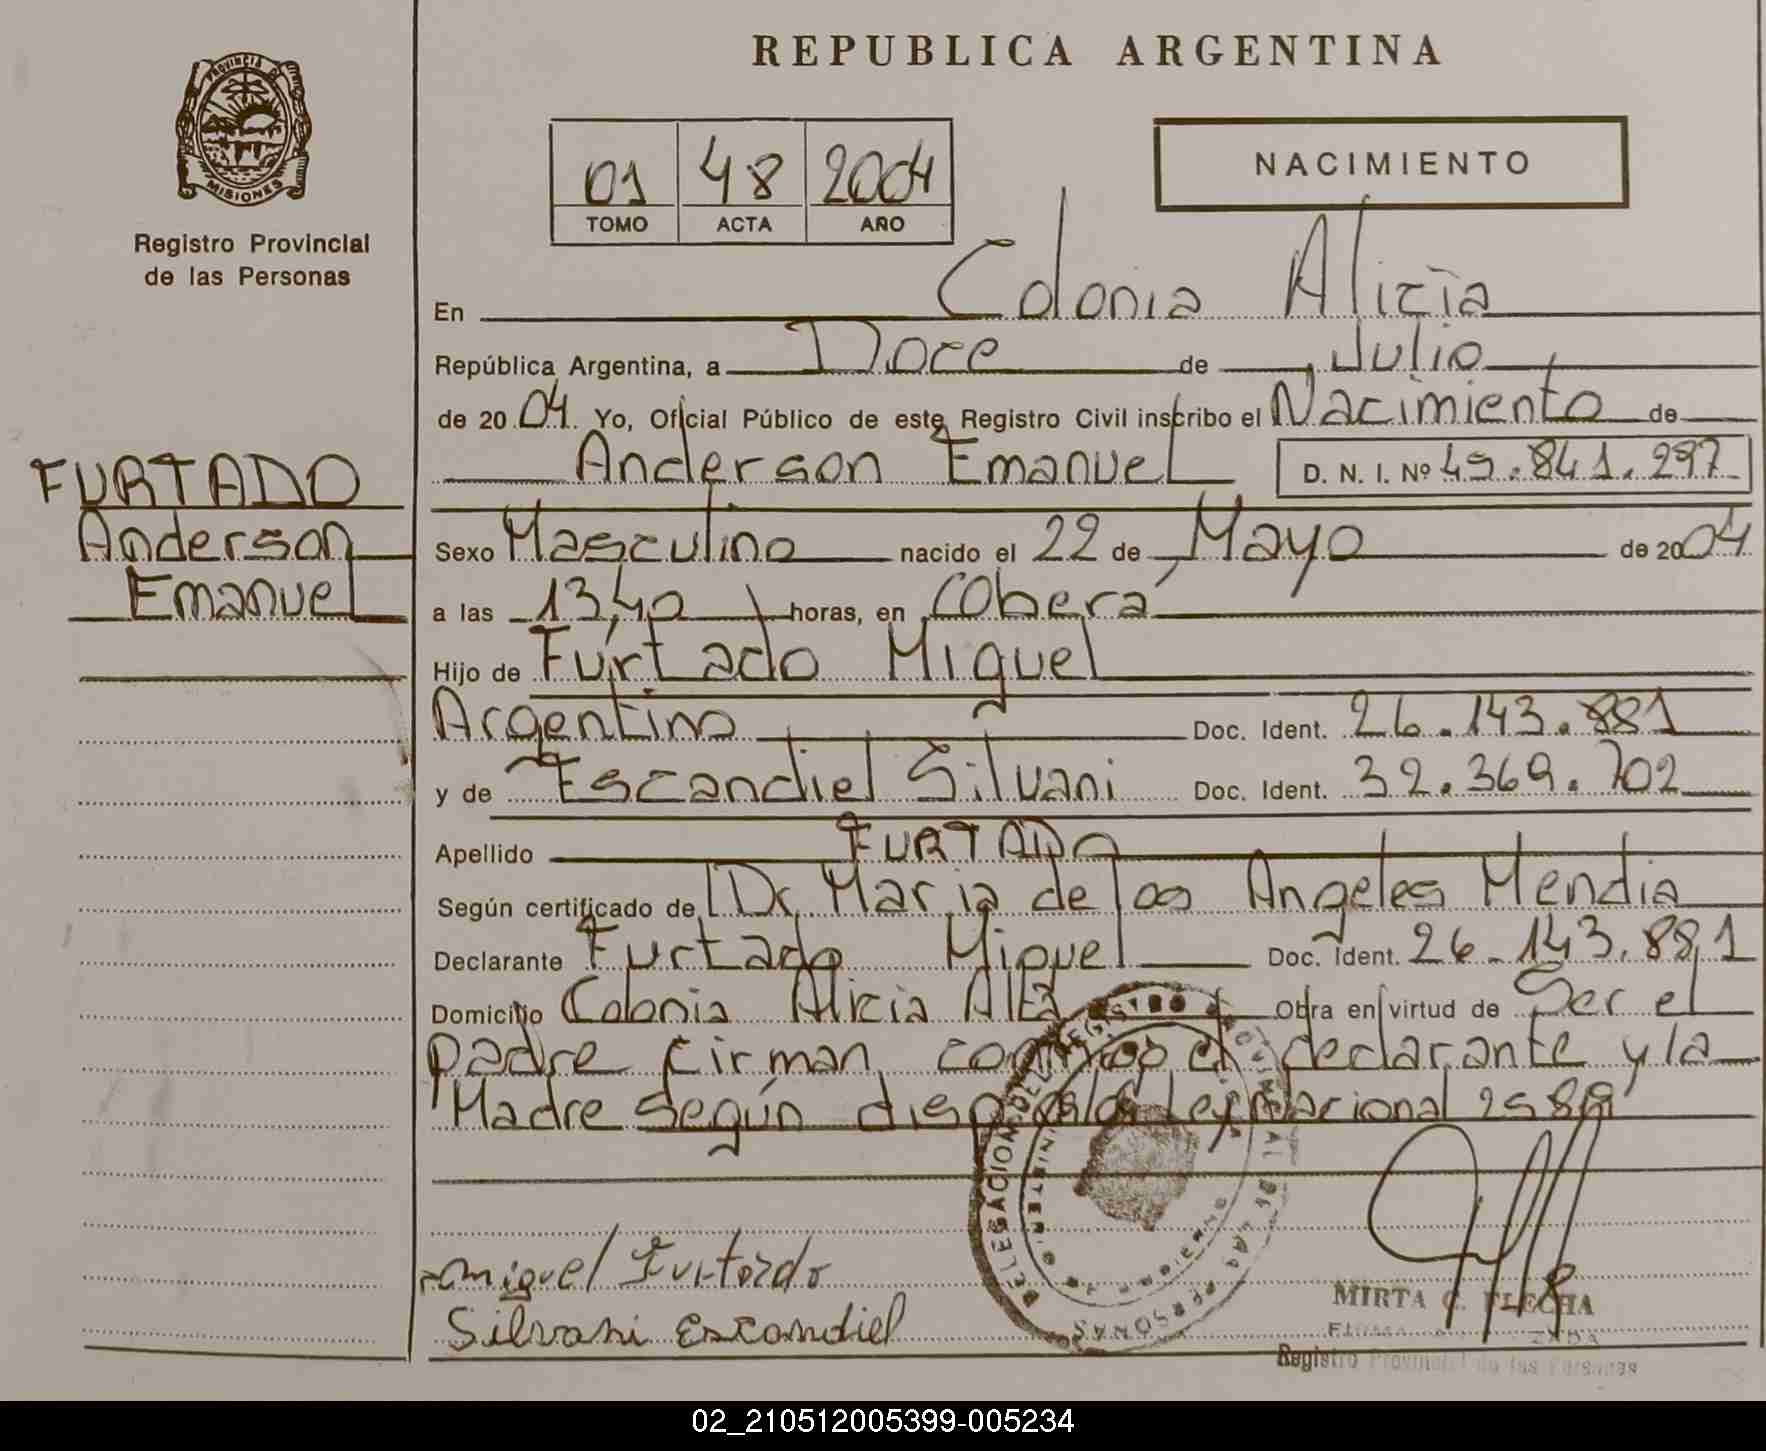 PROVINCIA DE
MISIONES
Registro Provincial
de las Personas
FURTADO
Anderson
Emanuel
REPUBLICA ARGENTINA
01 48 2004
TOMO ACTA AÑO
NACIMIENTO
En Colonia Alicia
República Argentina, a Doce de Julio
de 2004. Yo, Oficial Público de este Registro Civil inscribo el Nacimiento de
Anderson Emanuel D. N. I. Nº 45.841.297
Sexo Masculino nacido el 22 de Mayo de 2004
a las 13,40 horas, en Obera
Hijo de Furtado Miguel
Argentino Doc. Ident. 26.143.881
y de Escandiel Silvani Doc. Ident. 32.369.702
Apellido FURTADO
Según certificado de Dr Maria de los Angeles Mendia
Declarante Furtado Miguel Doc. Ident. 26.143.881
Domicilio Colonia Alicia Alta Obra en virtud de Ser el
padre firman el declarante y la
Madre según Ley Nacional
DELEGACION DEL REGISTRO PROVINCIAL DE LAS PERSONAS
MINISTERIO
Miguel Furtado
Silvani Escandiel
MIRTA C. FLECHA
Registro Provincial de las Personas
02_210512005399-005234